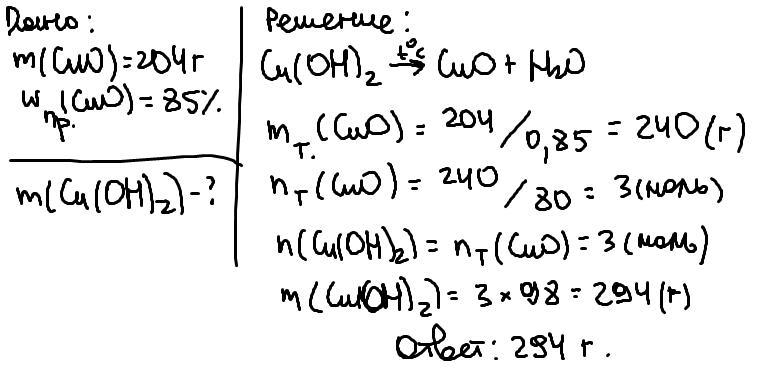 Дано:
m(CuO)=204 г
w пр.(CuO)=85%.
m(Cu(OH)₂)-?
Решение:
Cu(OH)₂ →t°C CuO + H₂O
m т.(CuO) = 204/0,85 = 240(г)
n т(CuO) = 240/80 = 3(моль)
n(Cu(OH)₂) = n т(CuO) = 3(моль)
m(Cu(OH)₂) = 3 × 98 = 294(г)
Ответ: 294 г.